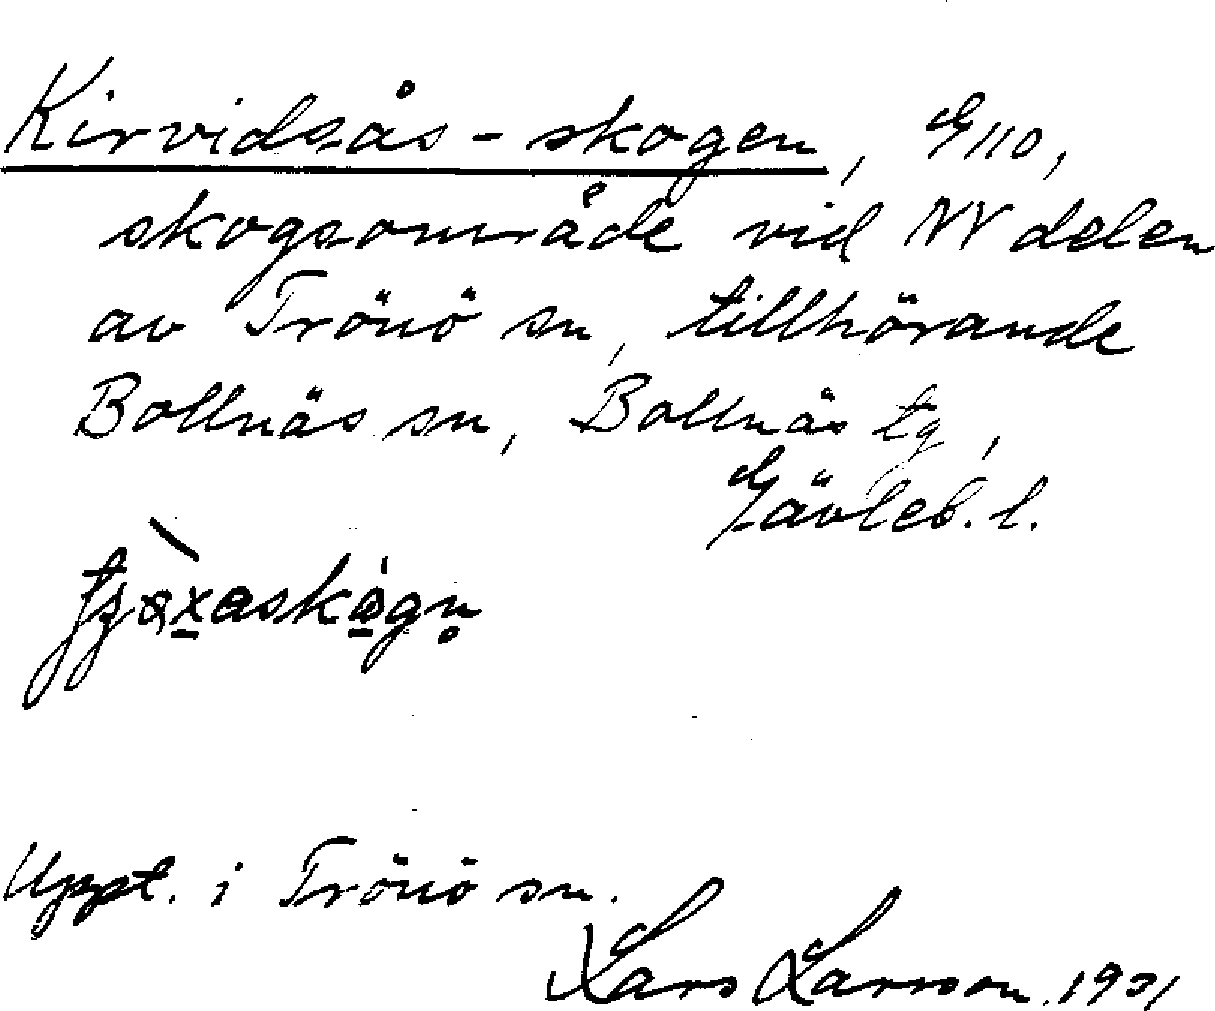 Kirvidsås-skogen, G110,
skogsområde vid NV delen
av Trönö sn, tillhörande
Bollnäs sn, Bollnäs tg,
Gävleb. l.
Uppt. i Trönö sn.
Lars Larsson. 1931